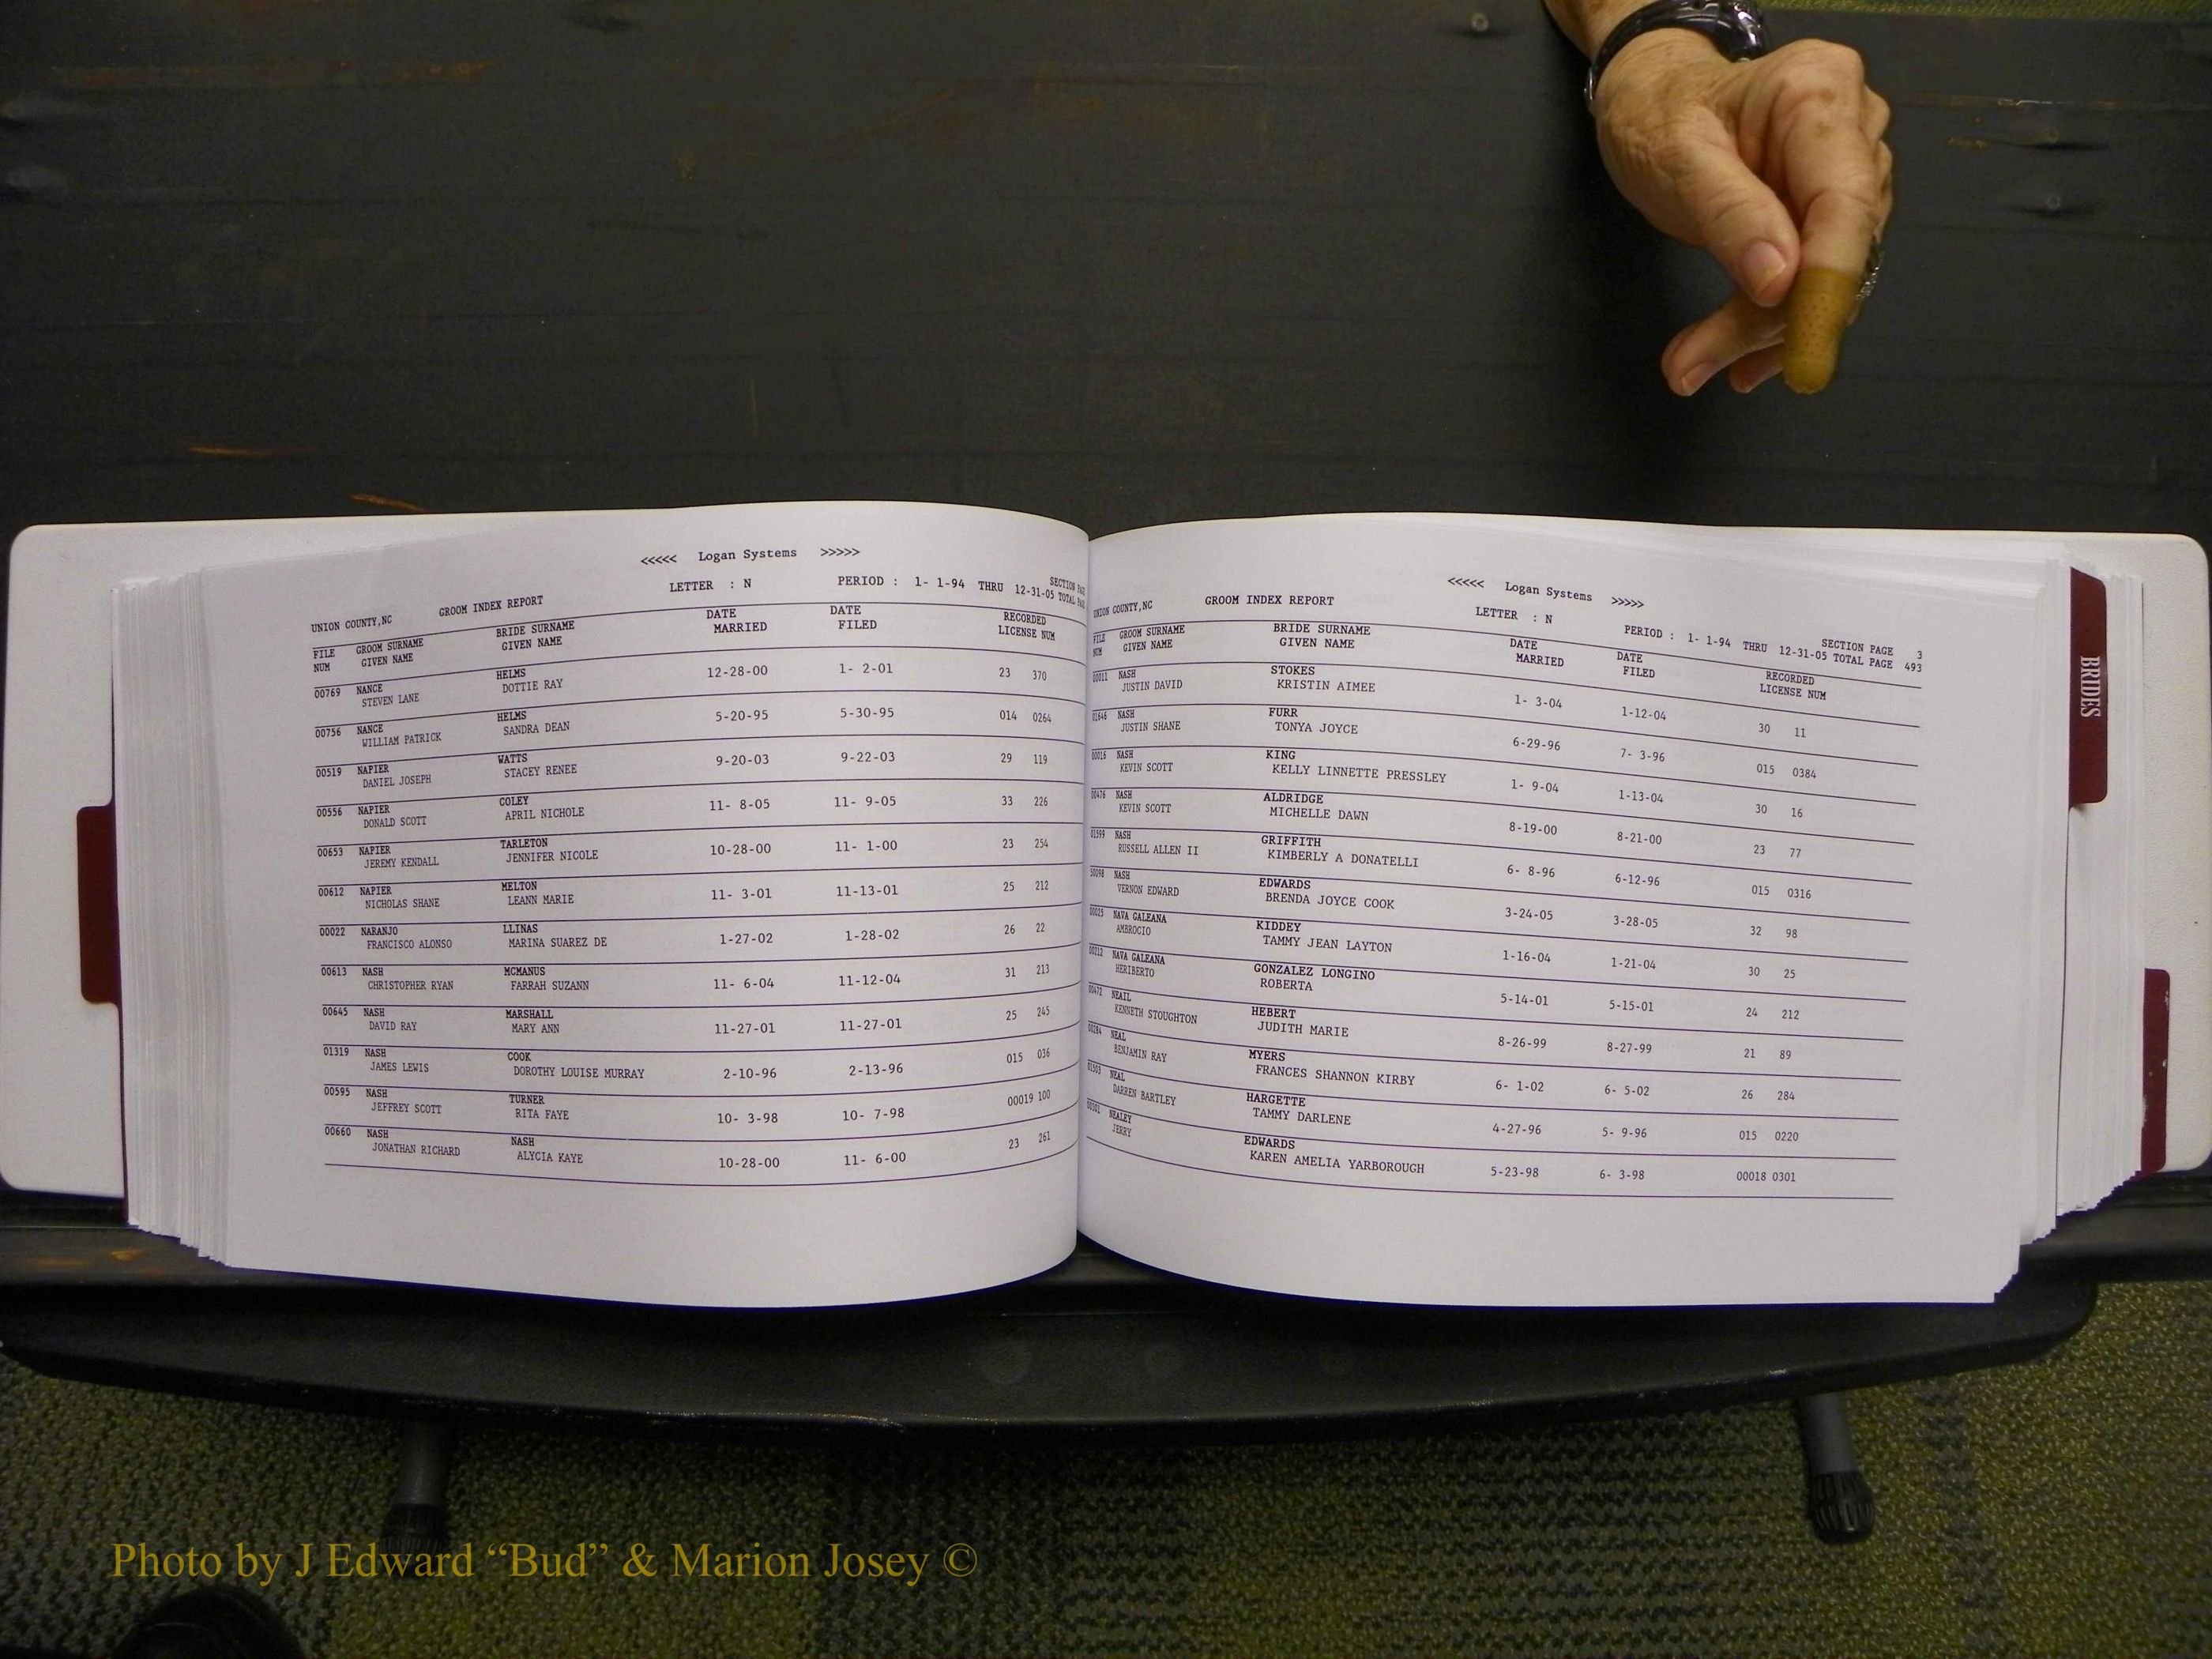 <<<<< Logan Systems >>>>>
LETTER : N PERIOD : 1- 1-94 THRU 12-31-05 TOTAL
SECTION
UNION COUNTY,NC GROOM INDEX REPORT
FILE GROOM SURNAME BRIDE SURNAME DATE DATE RECORDED
NUM GIVEN NAME GIVEN NAME MARRIED FILED LICENSE NUM
00769 NANCE HELMS 12-28-00 1- 2-01 23 370
STEVEN LANE DOTTIE RAY
00756 NANCE HELMS 5-20-95 5-30-95 014 0264
WILLIAM PATRICK SANDRA DEAN
00519 NAPIER WATTS 9-20-03 9-22-03 29 119
DANIEL JOSEPH STACEY RENEE
00556 NAPIER COLEY 11- 8-05 11- 9-05 33 226
DONALD SCOTT APRIL NICHOLE
00653 NAPIER TARLETON 10-28-00 11- 1-00 23 254
JEREMY KENDALL JENNIFER NICOLE
00612 NAPIER MELTON 11- 3-01 11-13-01 25 212
NICHOLAS SHANE LEANN MARIE
00022 NARANJO LLINAS 1-27-02 1-28-02 26 22
FRANCISCO ALONSO MARINA SUAREZ DE
00613 NASH MCMANUS 11- 6-04 11-12-04 31 213
CHRISTOPHER RYAN FARRAH SUZANN
00645 NASH MARSHALL 11-27-01 11-27-01 25 245
DAVID RAY MARY ANN
01319 NASH COOK 2-10-96 2-13-96 015 036
JAMES LEWIS DOROTHY LOUISE MURRAY
00595 NASH TURNER 10- 3-98 10- 7-98 00019 100
JEFFREY SCOTT RITA FAYE
00660 NASH NASH 10-28-00 11- 6-00 23 261
JONATHAN RICHARD ALYCIA KAYE
<<<<< Logan Systems >>>>>
UNION COUNTY,NC GROOM INDEX REPORT LETTER : N
SECTION PAGE 3
PERIOD : 1- 1-94 THRU 12-31-05 TOTAL PAGE 493
FILE GROOM SURNAME BRIDE SURNAME DATE DATE RECORDED
NUM GIVEN NAME GIVEN NAME MARRIED FILED LICENSE NUM
00011 NASH STOKES 1- 3-04 1-12-04 30 11
JUSTIN DAVID KRISTIN AIMEE
01646 NASH FURR 6-29-96 7- 3-96 015 0384
JUSTIN SHANE TONYA JOYCE
00016 NASH KING 1- 9-04 1-13-04 30 16
KEVIN SCOTT KELLY LINNETTE PRESSLEY
00476 NASH ALDRIDGE 8-19-00 8-21-00 23 77
KEVIN SCOTT MICHELLE DAWN
01599 NASH GRIFFITH 6- 8-96 6-12-96 015 0316
RUSSELL ALLEN II KIMBERLY A DONATELLI
NASH EDWARDS 3-24-05 3-28-05 32 98
VERNON EDWARD BRENDA JOYCE COOK
00025 NAVA GALEANA KIDDEY 1-16-04 1-21-04 30 25
AMBROCIO TAMMY JEAN LAYTON
00212 NAVA GALEANA GONZALEZ LONGINO 5-14-01 5-15-01 24 212
HERIBERTO ROBERTA
00472 NEAIL HEBERT 8-26-99 8-27-99 21 89
KENNETH STOUGHTON JUDITH MARIE
00284 NEAL MYERS 6- 1-02 6- 5-02 26 284
BENJAMIN RAY FRANCES SHANNON KIRBY
01503 NEAL HARGETTE 4-27-96 5- 9-96 015 0220
DARREN BARTLEY TAMMY DARLENE
00301 NEALEY EDWARDS 5-23-98 6- 3-98 00018 0301
JERRY KAREN AMELIA YARBOROUGH
BRIDES
Photo by J Edward “Bud” & Marion Josey ©